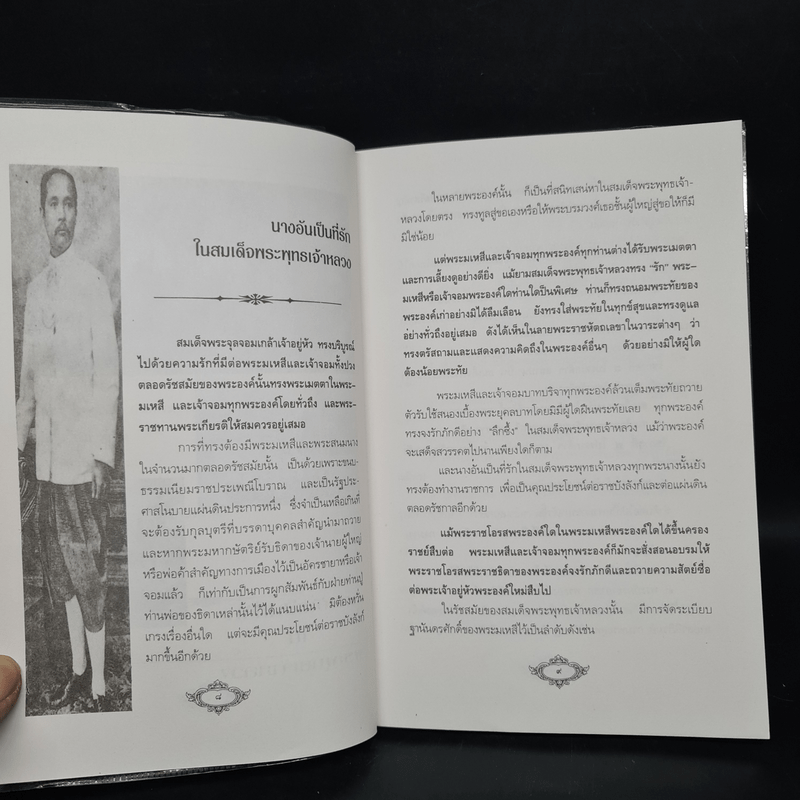 นางอันเป็นที่รัก
ในสมเด็จพระพุทธเจ้าหลวง
สมเด็จพระจุลจอมเกล้าเจ้าอยู่หัว ทรงบริบูรณ์
ไปด้วยความรักที่มีต่อพระมเหสีและเจ้าจอมทั้งปวง
ตลอดรัชสมัยของพระองค์นั้นทรงพระเมตตาในพระ-
มเหสี และเจ้าจอมทุกพระองค์โดยทั่วถึง และพระ-
ราชทานพระเกียรติให้สมควรอยู่เสมอ
การที่ทรงต้องมีพระมเหสีและพระสนมนาง
ในจำนวนมากตลอดรัชสมัยนั้น เป็นด้วยเพราะขนบ-
ธรรมเนียมราชประเพณีโบราณ และเป็นรัฐประ-
ศาสโนบายแผ่นดินประการหนึ่ง ซึ่งจำเป็นเหลือเกินที่
จะต้องรับกุลบุตรีที่บรรดาบุคคลสำคัญนำมาถวาย
และหากพระมหากษัตริย์รับธิดาของเจ้านายผู้ใหญ่
หรือพ่อค้าสำคัญทางการเมืองไว้เป็นอัครชายาหรือเจ้า
จอมแล้ว ก็เท่ากับเป็นการผูกสัมพันธ์กับฝ่ายท่านปู่
ท่านพ่อของธิดาเหล่านั้นไว้ได้แนบแน่น มิต้องหวั่น
เกรงเรื่องอื่นใด แต่จะมีคุณประโยชน์ต่อราชบัลลังก์
มากขึ้นอีกด้วย
๘
ในหลายพระองค์นั้น ก็เป็นที่สนิทเสน่หาในสมเด็จพระพุทธเจ้า-
หลวงโดยตรง ทรงทูลสู่ขอเองหรือให้พระบรมวงศ์เธอชั้นผู้ใหญ่สู่ขอให้ก็มี
มิใช่น้อย
แต่พระมเหสีและเจ้าจอมทุกพระองค์ทุกท่านต่างได้รับพระเมตตา
และการเลี้ยงดูอย่างดียิ่ง แม้ยามสมเด็จพระพุทธเจ้าหลวงทรง “รัก” พระ-
มเหสีหรือเจ้าจอมพระองค์ใดท่านใดเป็นพิเศษ ท่านก็ทรงถนอมพระทัยของ
พระองค์เก่าอย่างมิได้ลืมเลือน ยังทรงใส่พระทัยในทุกข์สุขและทรงดูแล
อย่างทั่วถึงอยู่เสมอ ดังได้เห็นในลายพระราชหัตถเลขาในวาระต่างๆ ว่า
ทรงตรัสถามและแสดงความคิดถึงในพระองค์อื่นๆ ด้วยอย่างมิให้ผู้ใด
ต้องน้อยพระทัย
พระมเหสีและเจ้าจอมบาทบริจาทุกพระองค์ล้วนเต็มพระทัยถวาย
ตัวรับใช้สนองเบื้องพระยุคลบาทโดยมิมีผู้ใดฝืนพระทัยเลย ทุกพระองค์
ทรงจงรักภักดีอย่าง “ลึกซึ้ง” ในสมเด็จพระพุทธเจ้าหลวง แม้ว่าพระองค์
จะเสด็จสวรรคตไปนานเพียงใดก็ตาม
และนางอันเป็นที่รักในสมเด็จพระพุทธเจ้าหลวงทุกพระนางนั้นยัง
ทรงต้องทำงานราชการ เพื่อเป็นคุณประโยชน์ต่อราชบัลลังก์และต่อแผ่นดิน
ตลอดรัชกาลอีกด้วย
แม้พระราชโอรสพระองค์ใดในพระมเหสีพระองค์ใดได้ขึ้นครอง
ราชย์สืบต่อ พระมเหสีและเจ้าจอมทุกพระองค์ก็มักจะสั่งสอนอบรมให้
พระราชโอรสพระราชธิดาของพระองค์จงรักภักดีและถวายความสัตย์ซื่อ
ต่อพระเจ้าอยู่หัวพระองค์ใหม่สืบไป
ในรัชสมัยของสมเด็จพระพุทธเจ้าหลวงนั้น มีการจัดระเบียบ
ฐานันดรศักดิ์ของพระมเหสีไว้เป็นลำดับดังเช่น
๙